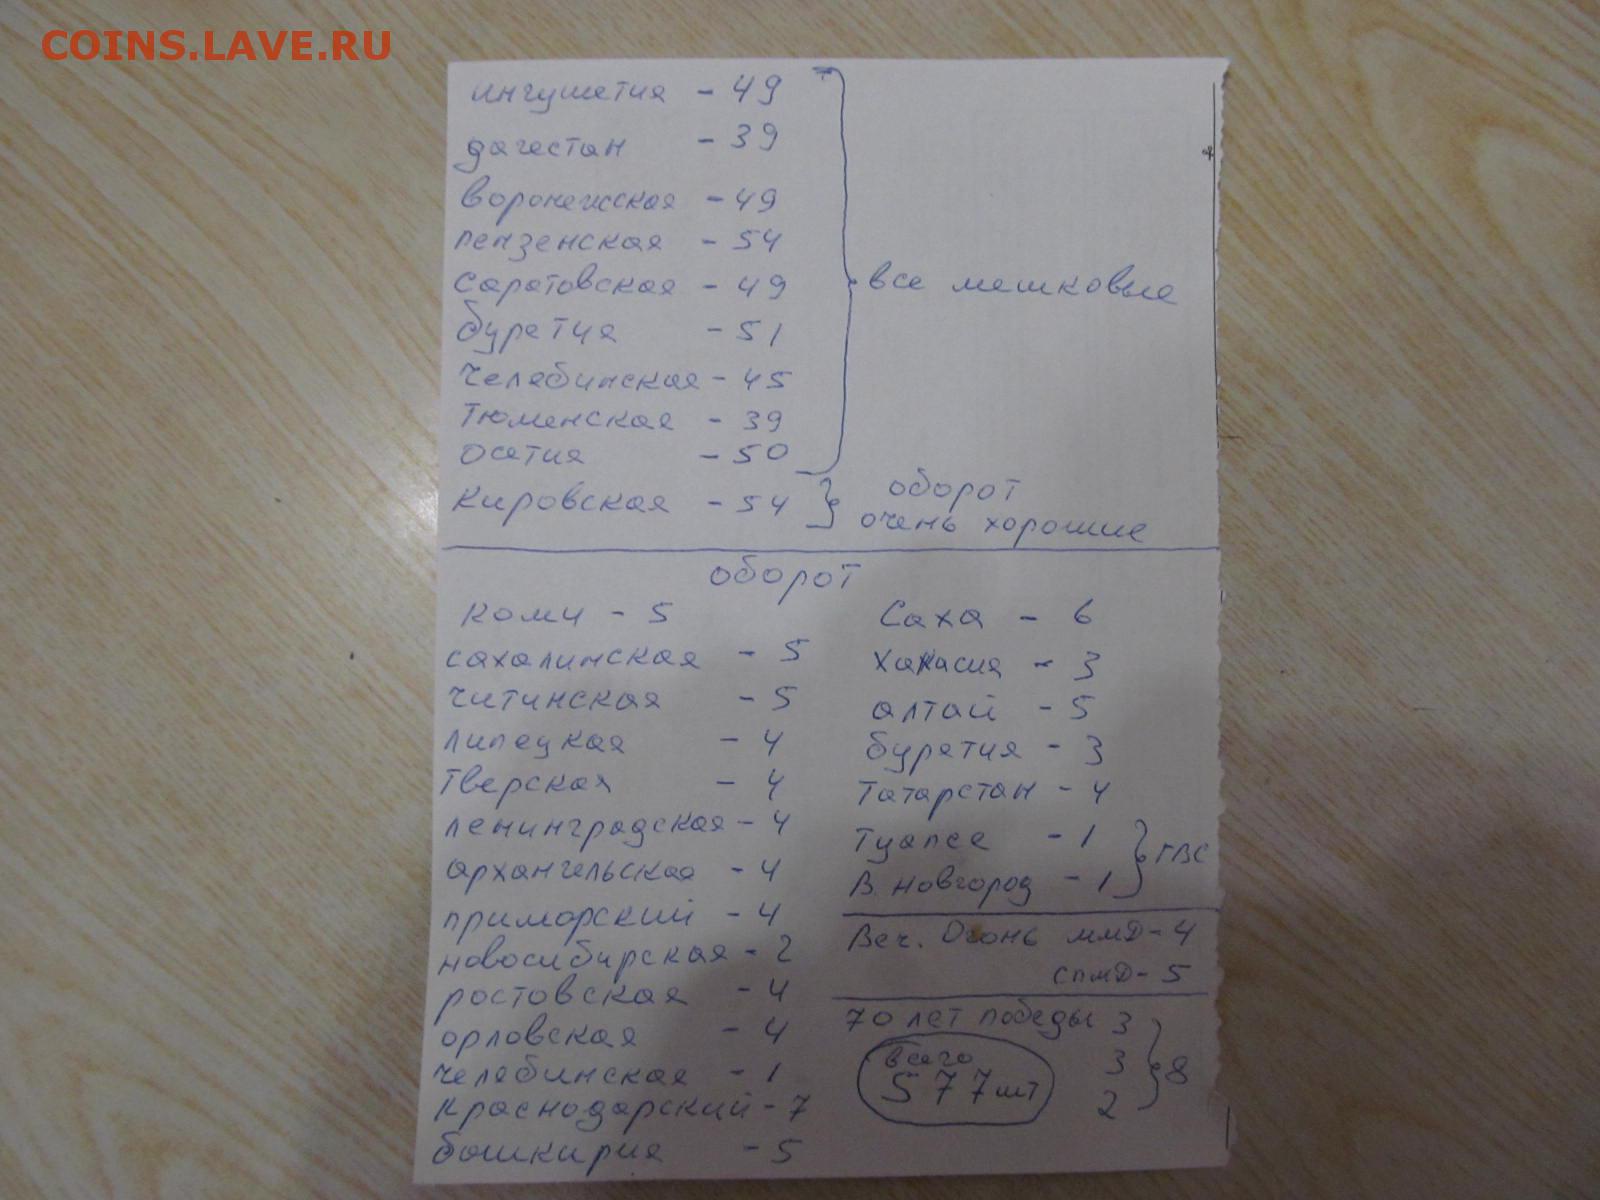 COINS.LAVE.RU
ингушетия - 49
дагестан - 39
воронежская - 49
пензенская - 54
саратовская - 49
буретия - 51
челябинская - 45
тюменская - 39
осетия - 50
все мешковые
кировская - 54
оборот
очень хорошие
оборот
коми - 5
сахалинская - 5
читинская - 5
липецкая - 4
тверская - 4
ленинградская - 4
архангельская - 4
приморский - 4
новосибирская - 2
ростовская - 4
орловская - 4
челябинская - 1
краснодарский - 7
башкирия - 5
Саха - 6
хакасия - 3
алтай - 5
буретия - 3
Татарстан - 4
Туапсе - 1
В. новгород - 1
ГВС
Веч. Огонь ммд - 4
спмд - 5
70 лет победы 3
3
2
8
всего
577 шт